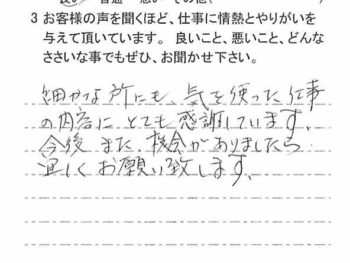 3 お客様の声を聞くほど、仕事に情熱とやりがいを
与えて頂いています。 良いこと、悪いこと、どんな
ささいな事でもぜひ、お聞かせ下さい。
細かな所にも、気を使った仕事
の内容に とても 感謝しています。
今後 また、機会がありましたら
宜しく お願い致します。